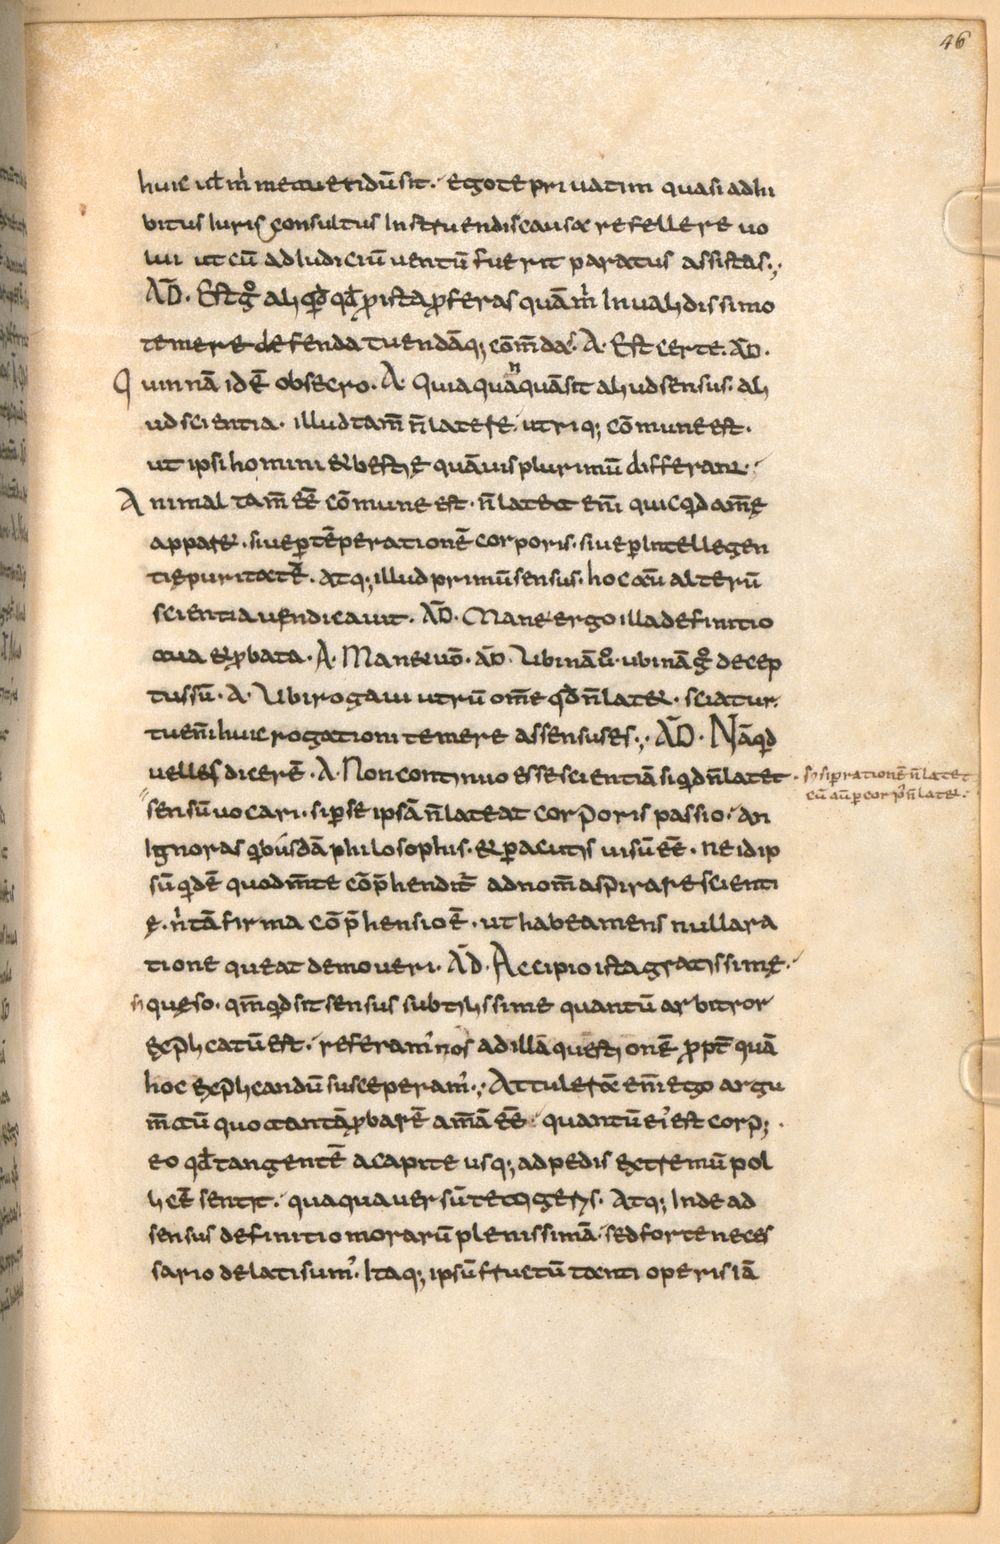 46
huic uel m̄ metuendū sit. ego te priuatim quasi adhi
bitus Iuris consultus Instruendis causae refellere uo
lui ut cū ad Iudiciū uentū fuerit paratus assistas.,
AD̄. Est ḡ aliqd̄ qd̄ p ista pferas quā m̄ Inualidissimo
temere defenda tuendāq; cōm̄das. A. Est certe. AD̄.
Quin nā id ē obsecro. A. Quia quāquā sit aliud sensus. ali
ud scientia. illud tam̄ n̄ latere utriq; cōmune est.
ut ipsi homini & bestię quāuis plurimū differant.
Animal tam̄ eē cōmune est. n̄ latet eni quicqd amę
apparet. siue p tēperationē corporis. siue p Intellegen
tię puritatē. Atq; illud primū sensus. hoc au alterū
scientia uendicauit. AD̄. Manet ergo illa definitio
tua & pbata. A. Manet uō. AD̄. Ubi nā. ubi nā ḡ decep
tus sū. A. Ubi rogaui utrū om̄e qd̄ n̄ latet. sciatur.
tu eni huic rogationi temere assensus es., AD̄. Nā qd
uelles dicerē. A. Non continuo esse scientiā si qd n̄ latet.
si p rationē n̄ latet
cū au p corp n̄ latet.
sensū uocari. si p se ipsā n̄ lateat corporis passio. An
Ignoras qbusdā philosophis. & peracutis uisū eē. ne id ip
sū qdē quod m̄te cōp̄hendit̄ ad nom̄ aspirare scienti
ę. n̄ tā firma cōp̄hensio ē. ut habea mens nulla ra
tione queat demoueri. AD̄. Accipio ista gratissimę.
queso. qm̄ qd sit sensus subtilissime quantū arbitror
explicatū est. referam' nos ad illā questionē ppt̄ quā
hoc explicandū susceperam'., Attulerā em̄ ego argu
m̄tū quo tantā pbarē am̄ā eē. quantū ei' est corp;.
eo qd̄ tangentē a capite usq; ad pedis extremū pol
licē sentit. quaqua uersū tetigeris. Atq; Inde ad
sensus definitio morarū plenissimā. sed forte neces
sario delati sum'. Itaq; ipsū fructū tanti operis iā